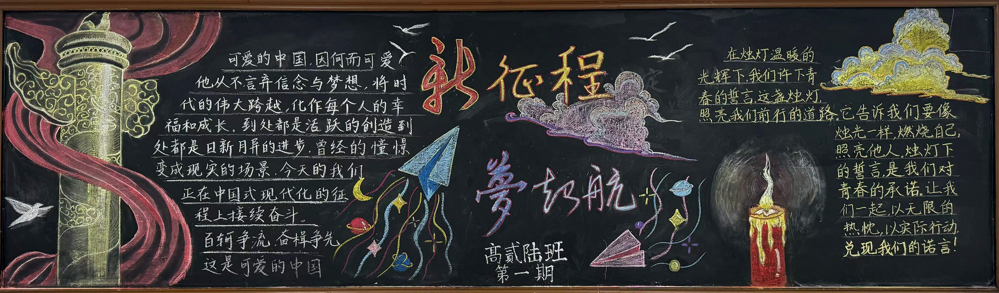 可爱的中国,因何而可爱
他从不言弃信念与梦想,将时
代的伟大跨越,化作每个人的幸
福和成长,到处都是活跃的创造到
处都是日新月异的进步,曾经的憧憬
变成现实的场景,今天的我们
正在中国式现代化的征
程上接续奋斗。
百舸争流,奋楫争先
这是可爱的中国
新征程
夢起航
高贰陆班
第一期
在烛灯温暖的
光辉下,我们许下青
春的誓言,这盏烛灯
照亮我们前行的道路,它告诉我们要像
烛光一样,燃烧自己,
照亮他人,烛灯下
的誓言,是我们对
青春的承诺,让我
们一起,以无限的
热忱,以实际行动
兑现我们的诺言!